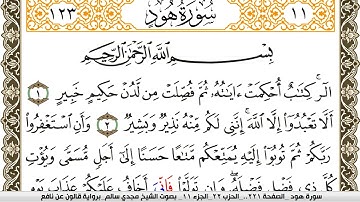 ١١ سُورَةُ هُودٍ ١٢٣
بِسْمِ اللَّهِ الرَّحْمَٰنِ الرَّحِيمِ
أَلَٓرۚ كِتَٰبٌ أُحْكِمَتَ ـ ايَٰتُهُۥ ثُمَّ فُصِّلَتْ مِن لَّدُنْ حَكِيمٍ خَبِيرٍ ١
أَلَّا تَعْبُدُوٓا۟ إِلَّا اَ۬للَّهَۖ إِنَّنِے لَكُم مِّنْهُ نَذِيرٞ وَبَشِيرٞ ٢ وَأَنِ اِ۪سْتَغْفِرُوا۟
رَبَّكُمْ ثُمَّ تُوبُوٓا۟ إِلَيْهِ يُمَتِّعْكُم مَّتَٰعًا حَسَنًا إِلَىٰٓ أَجَلٖ مُّسَمّٗى وَيُؤْتِ
كُلَّ ذِے فَضْلٖ فَضْلَهُۥۖ وَإِن تَوَلَّوْا۟ فَإِنِّيَ أَخَافُ عَلَيْكُمْ عَذَابَ يَوْمٖ
سورة هود _ الصفحة ٢٢١.. الحزب ٢٢_ الجزء ١١ _ بصوت الشيخ مجدي سالم_ برواية قالون عن نافع